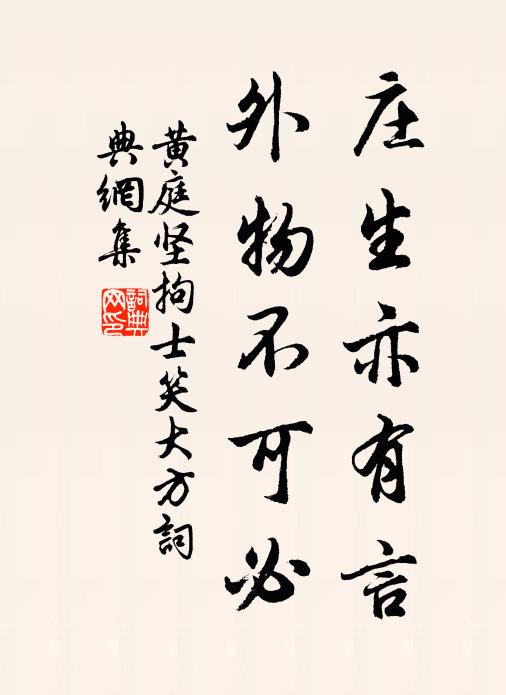 庄生亦有言
外物不可必
黄庭坚拘士笑大方詞
典網集
詞典网印